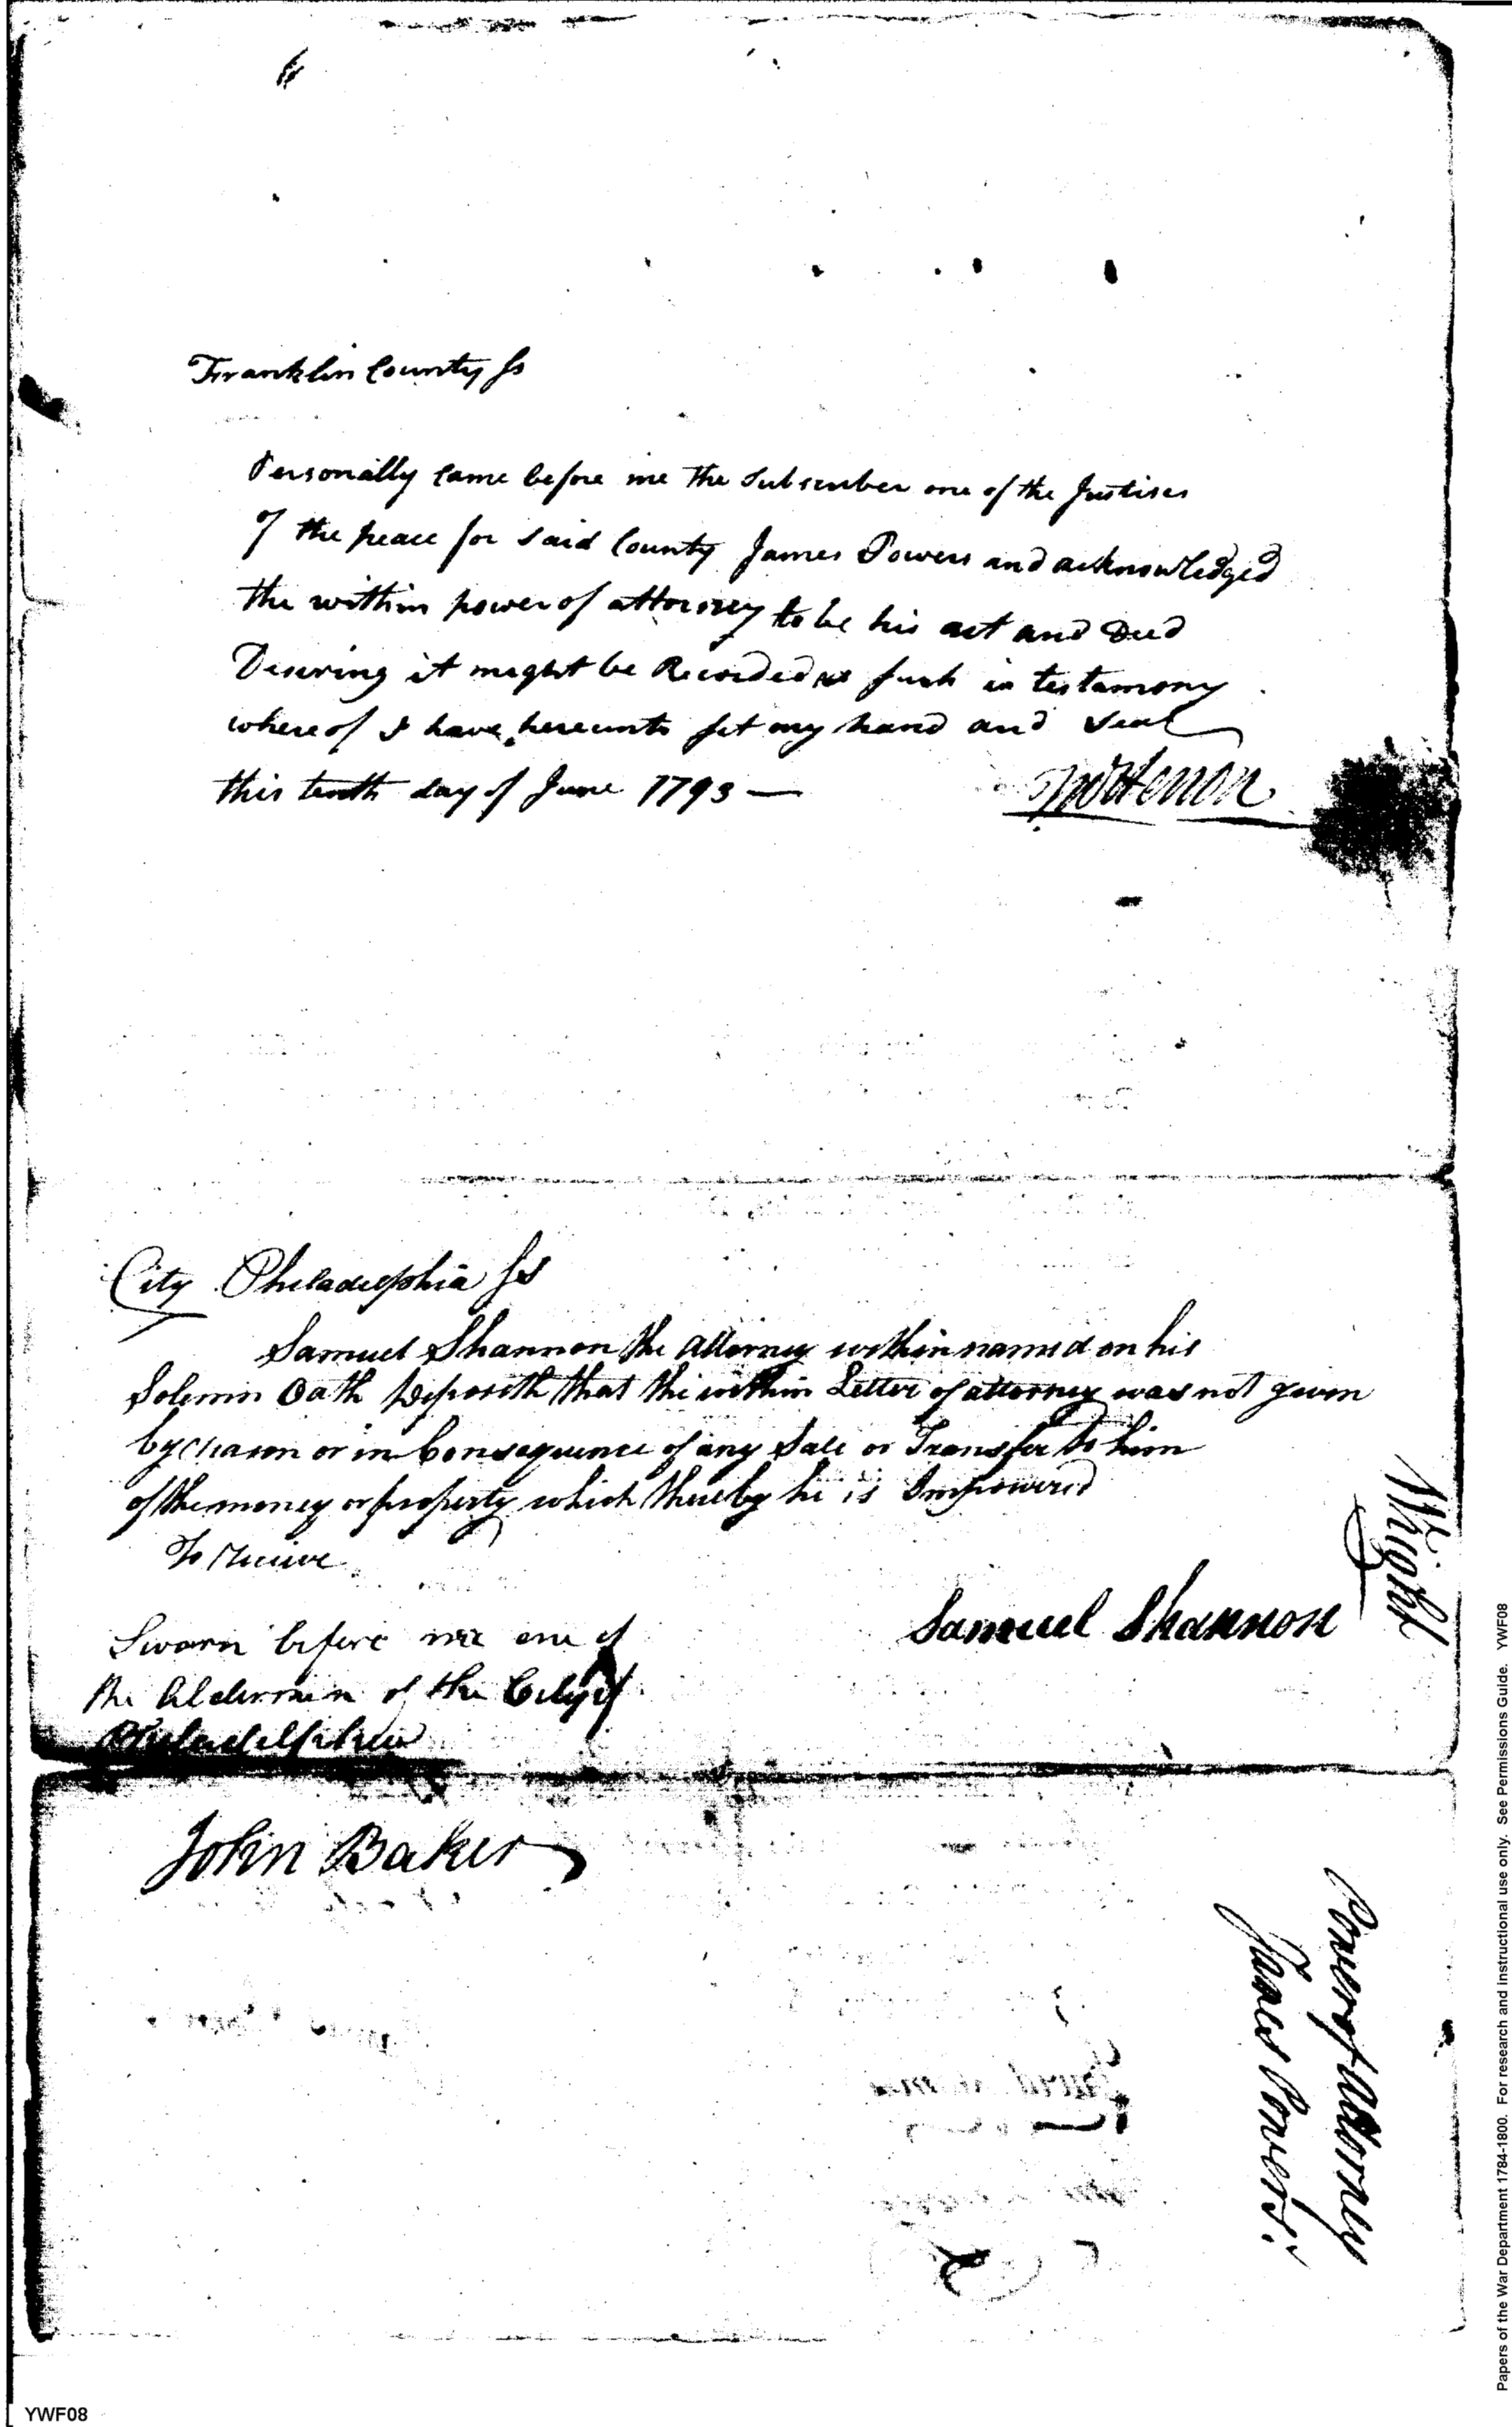 Franklin County Ss
Personally Came before me the Subscriber one of the Justises
of the peace for said County James Powers and acknowledged
the within power of attorney to be his act and Deed
Desiring it might be Recorded as such in testamony
whereof I have hereunto set my hand and Seal
this tenth day of June 1793 —
City Philadelphia Ss
Samuel Shannon the Attorney within named on his
Solemn Oath Deposeth that the within Letter of attorney was not given
by reason or in Consequence of any Sale or Transfer to him
of the money or property which thereby he is Impowered
To receive
Samuel Shannon
Sworn before me one of
the Aldermen of the City of
Philadelphia
John Baker
Wright
Power of Attorney
James Powers
Papers of the War Department 1784-1800. For research and instructional use only. See Permissions Guide. YWF08
YWF08